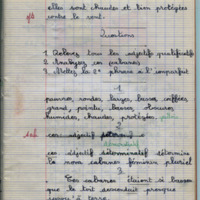 elles sont chaudes et bien protégées
contre le vent.
Questions
1 Relevez tous les adjectifs qualificatifs
2 Analysez ces cabanes
3 Mettez la 2e phrase à l'imparfait
1
pauvres, rondes, larges, basses, coiffées,
grand, pointu, basses,
humides, chaudes, protégées,
2
ces adjectif
ces adjectif déterminatif détermine
le nom cabanes féminin pluriel
3
Ces cabanes étaient si basses
que le toit descendait presque
jusqu'à terre.